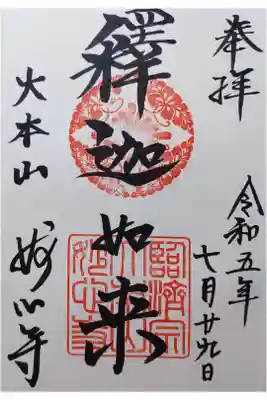 奉拝
令和五年
七月廿九日
釋迦如来
大本山
妙心寺
臨済宗
大本山
妙心寺